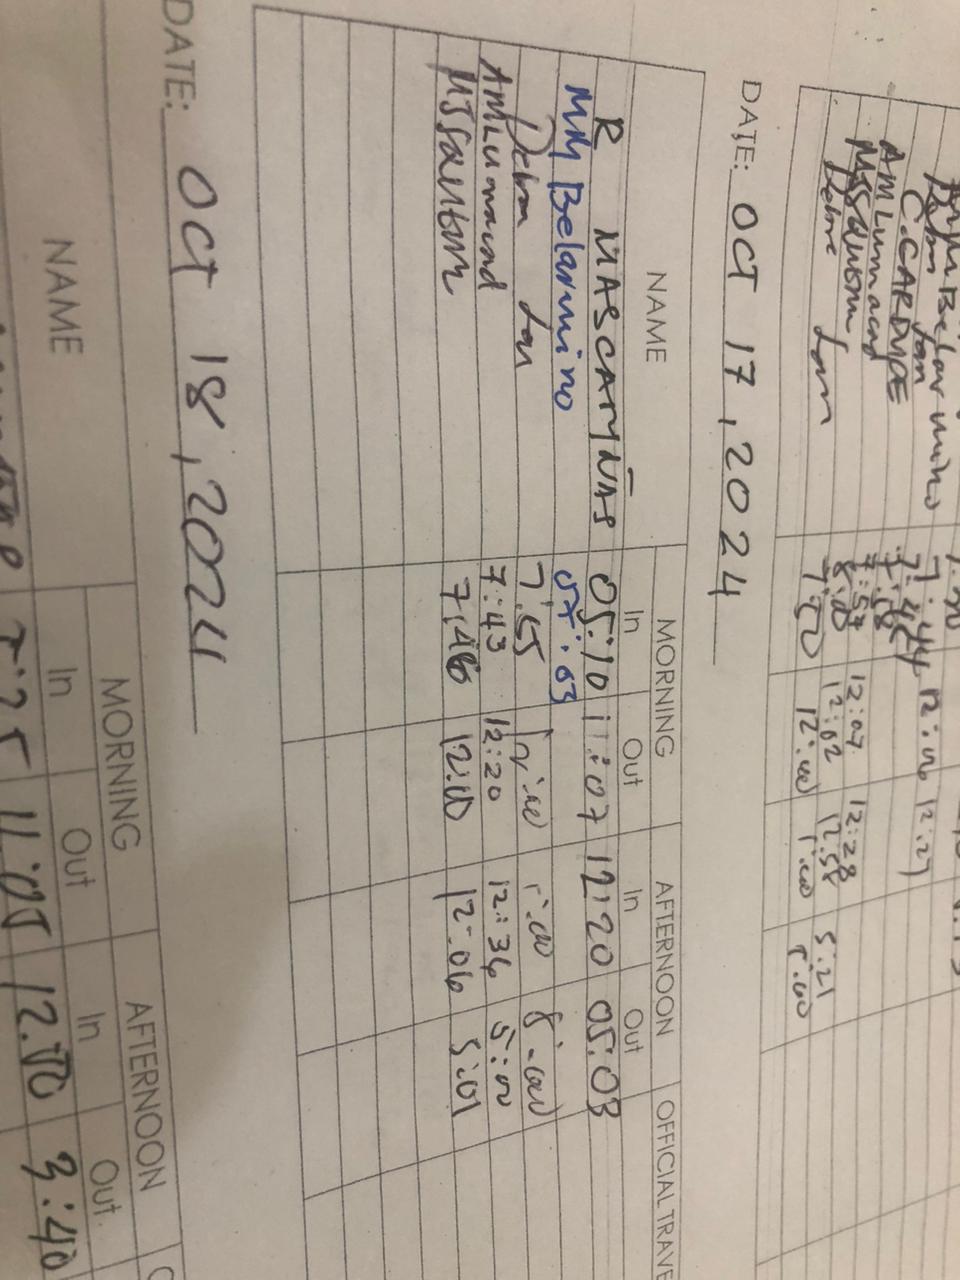 MM Belarmino
Debra Jan 7:44 12:00 12:27
C. CARDUPE
AMLumacad 7:58 12:07 12:28
MJSantum 8:00 12:02 12:58 5:21
Debra Jan 7:50 12:00 1:00 5:00
DATE: OCT 17, 2024
NAME MORNING AFTERNOON OFFICIAL TRAVE
In Out In Out
R MASCARIÑAS 05:10 11:07 12:20 05:03
MM Belarmino 07:03
Debra Jan 7:55 12:00 1:00 8:00
AMLumacad 7:43 12:20 12:36 5:00
MJSantum 7:46 12:00 12:06 5:01
DATE: OCT 18, 2024
NAME MORNING AFTERNOON
In Out In Out
7:25 11:05 12:00 3:40